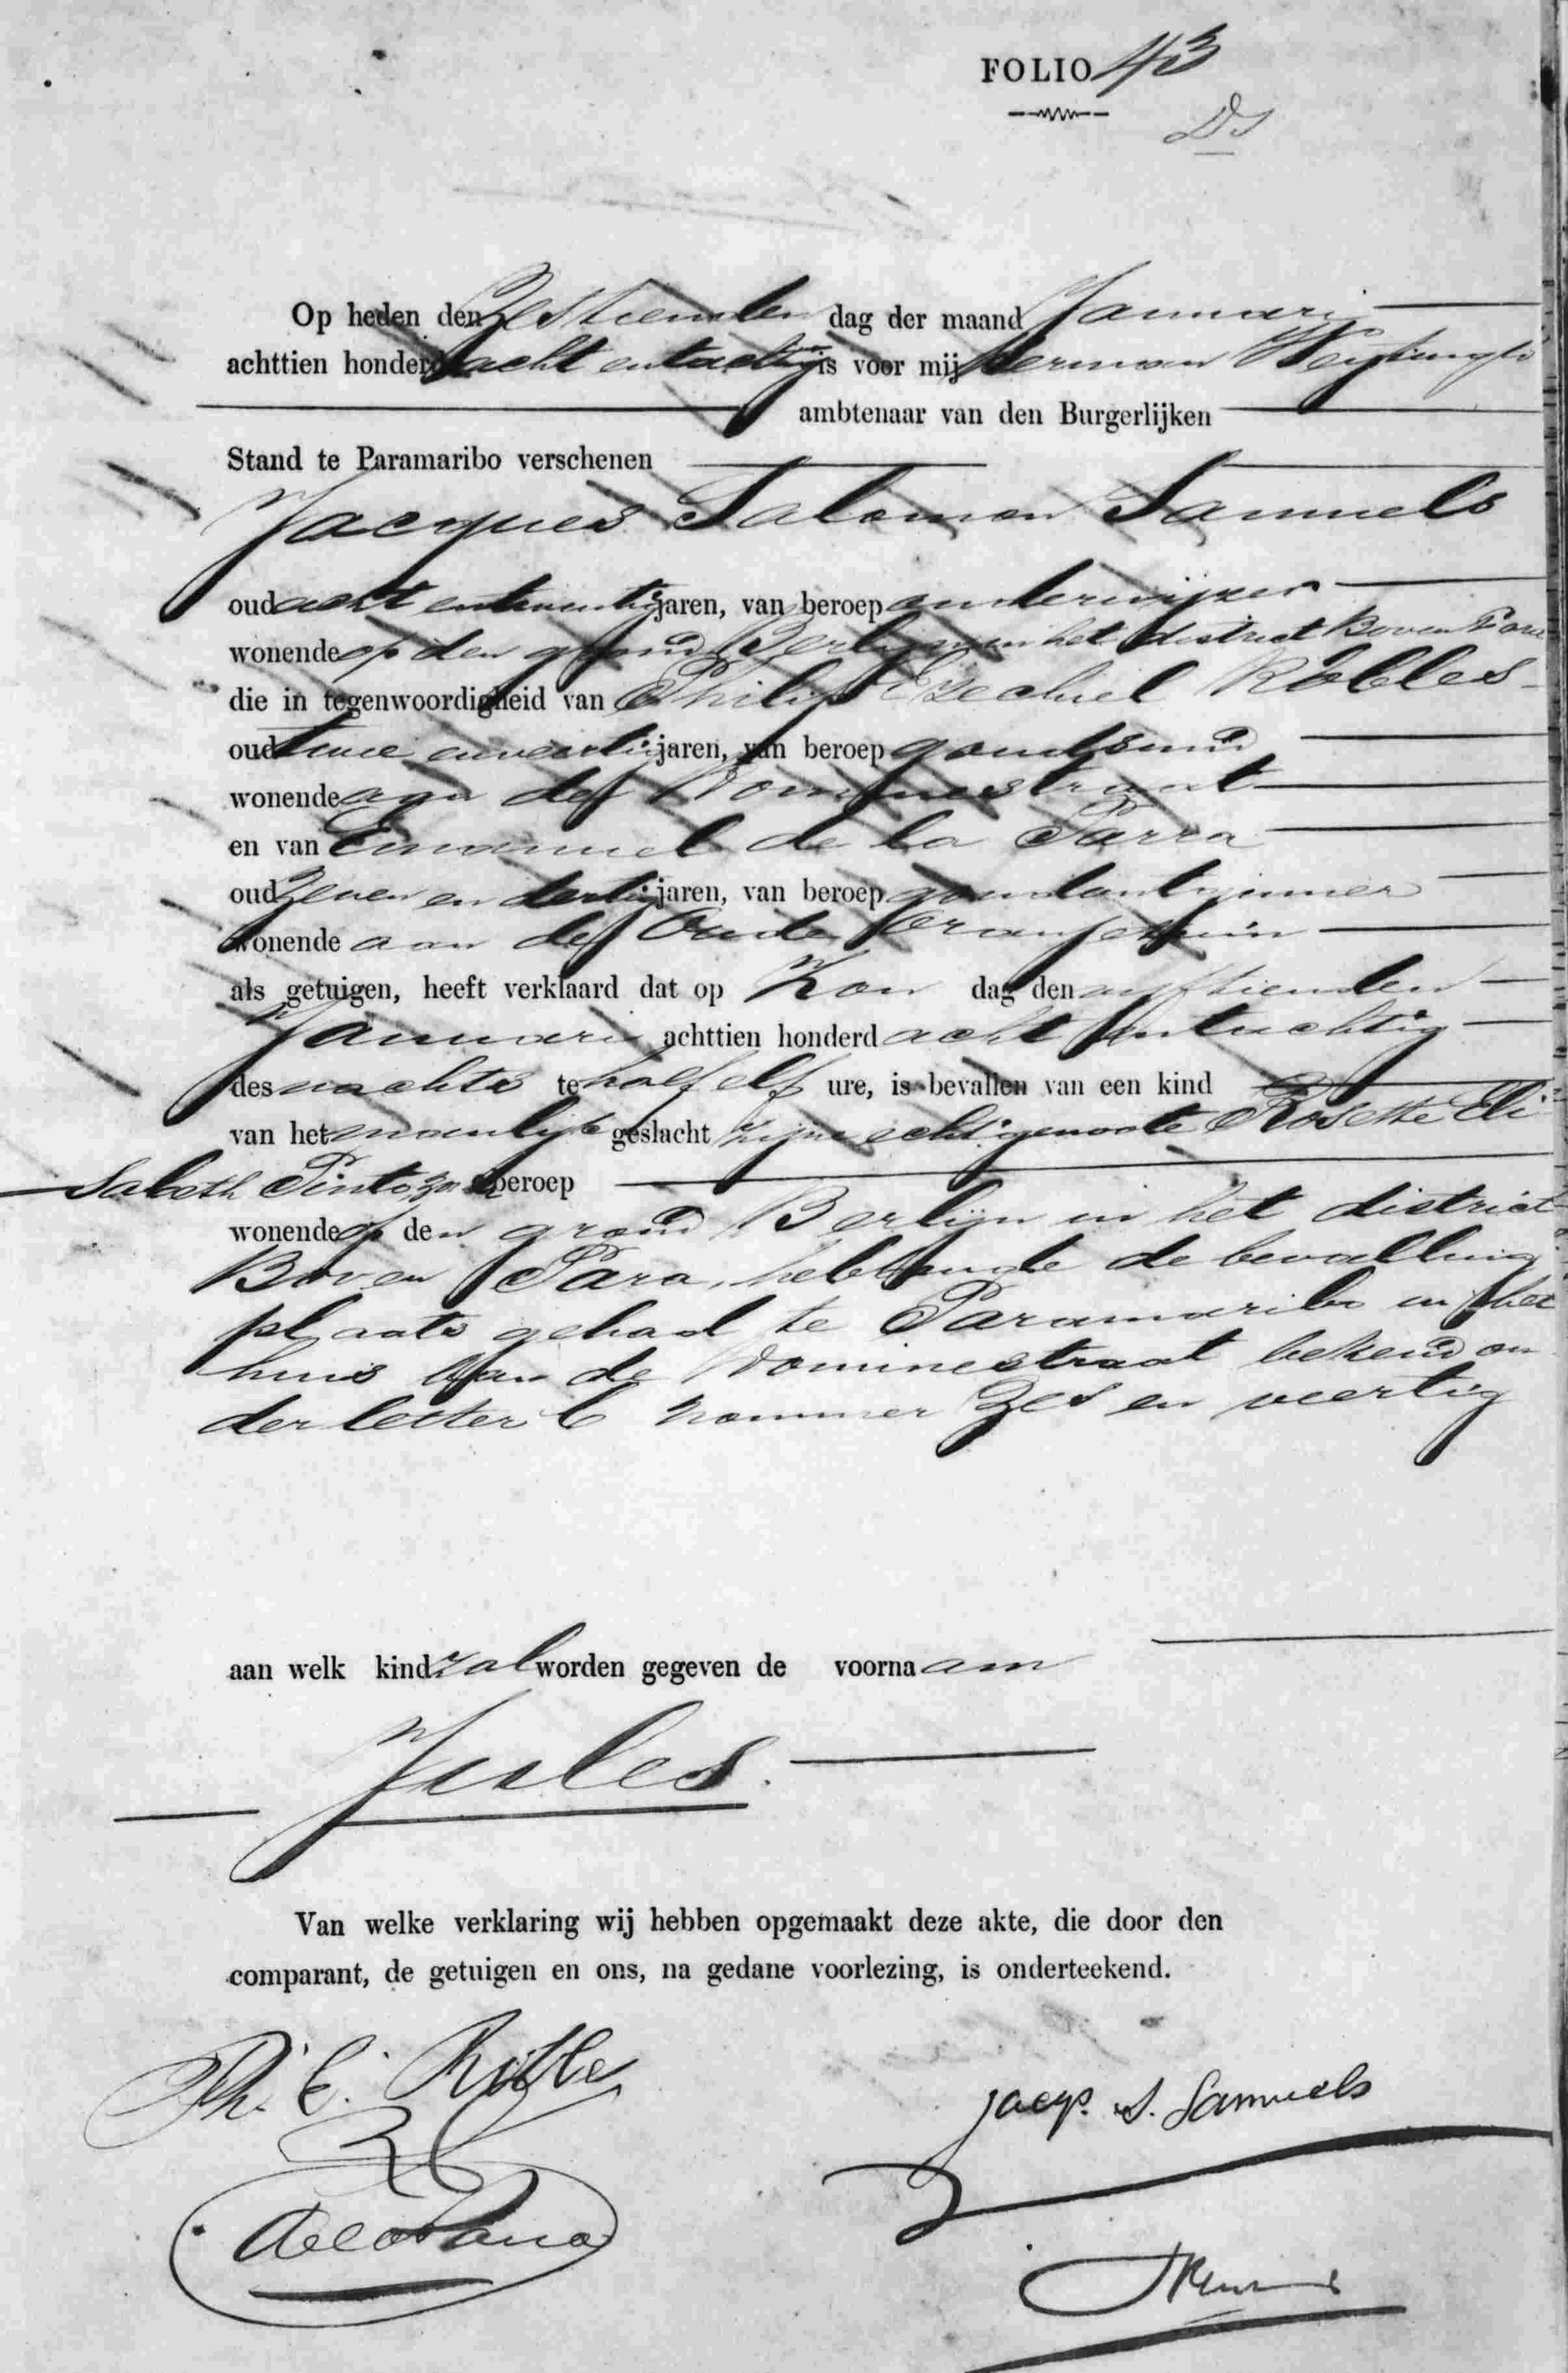 FOLIO 43
Op heden den zestienden dag der maand Januari
achttien honderd acht en tachtig is voor mij Herman
ambtenaar van den Burgerlijken
Stand te Paramaribo verschenen
Jacques Salomon Samuels
oud acht en twintig jaren, van beroep onderwijzer
wonende op den grond Berlijn in het district Boven Para
die in tegenwoordigheid van Philip Ezechiel Robles
oud twee en veertig jaren, van beroep goudsmid
wonende aan de Dominestraat
en van Emanuel de la Parra
oud zeven en dertig jaren, van beroep
wonende aan de Oude Oranjetuin
als getuigen, heeft verklaard dat op Zon dag den vijftienden
Januari achttien honderd acht en tachtig
des nachts te half elf ure, is bevallen van een kind
van het manlijk geslacht zijne echtgenoote Rosette Eli
sabeth Pinto, zonder beroep
wonende op den grond Berlijn in het district
Boven Para, hebbende de bevalling
plaats gehad te Paramaribo in het
huis aan de Dominestraat bekend on
der letter C nommer Zes en veertig
aan welk kind zal worden gegeven de voornaam
Jules.
Van welke verklaring wij hebben opgemaakt deze akte, die door den
comparant, de getuigen en ons, na gedane voorlezing, is onderteekend.
Ph. E. Robles
Jacqs. S. Samuels
de la Parra